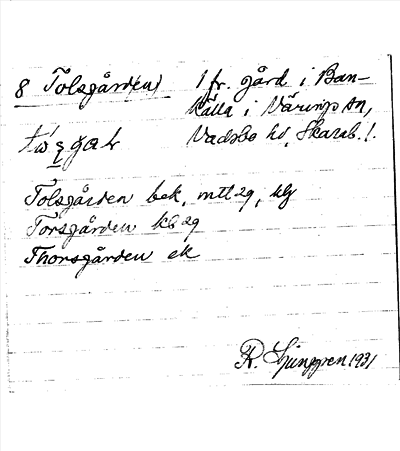 8 Tolsgård(en) 1 fr. gård i Ban-
källa i Väring sn,
Vadsbo hd, Skarab. l.
Tolsgården bek, mtl 29, hlg
Torsgården kb 29
Thorsgården ek
R. Ljunggren 1931